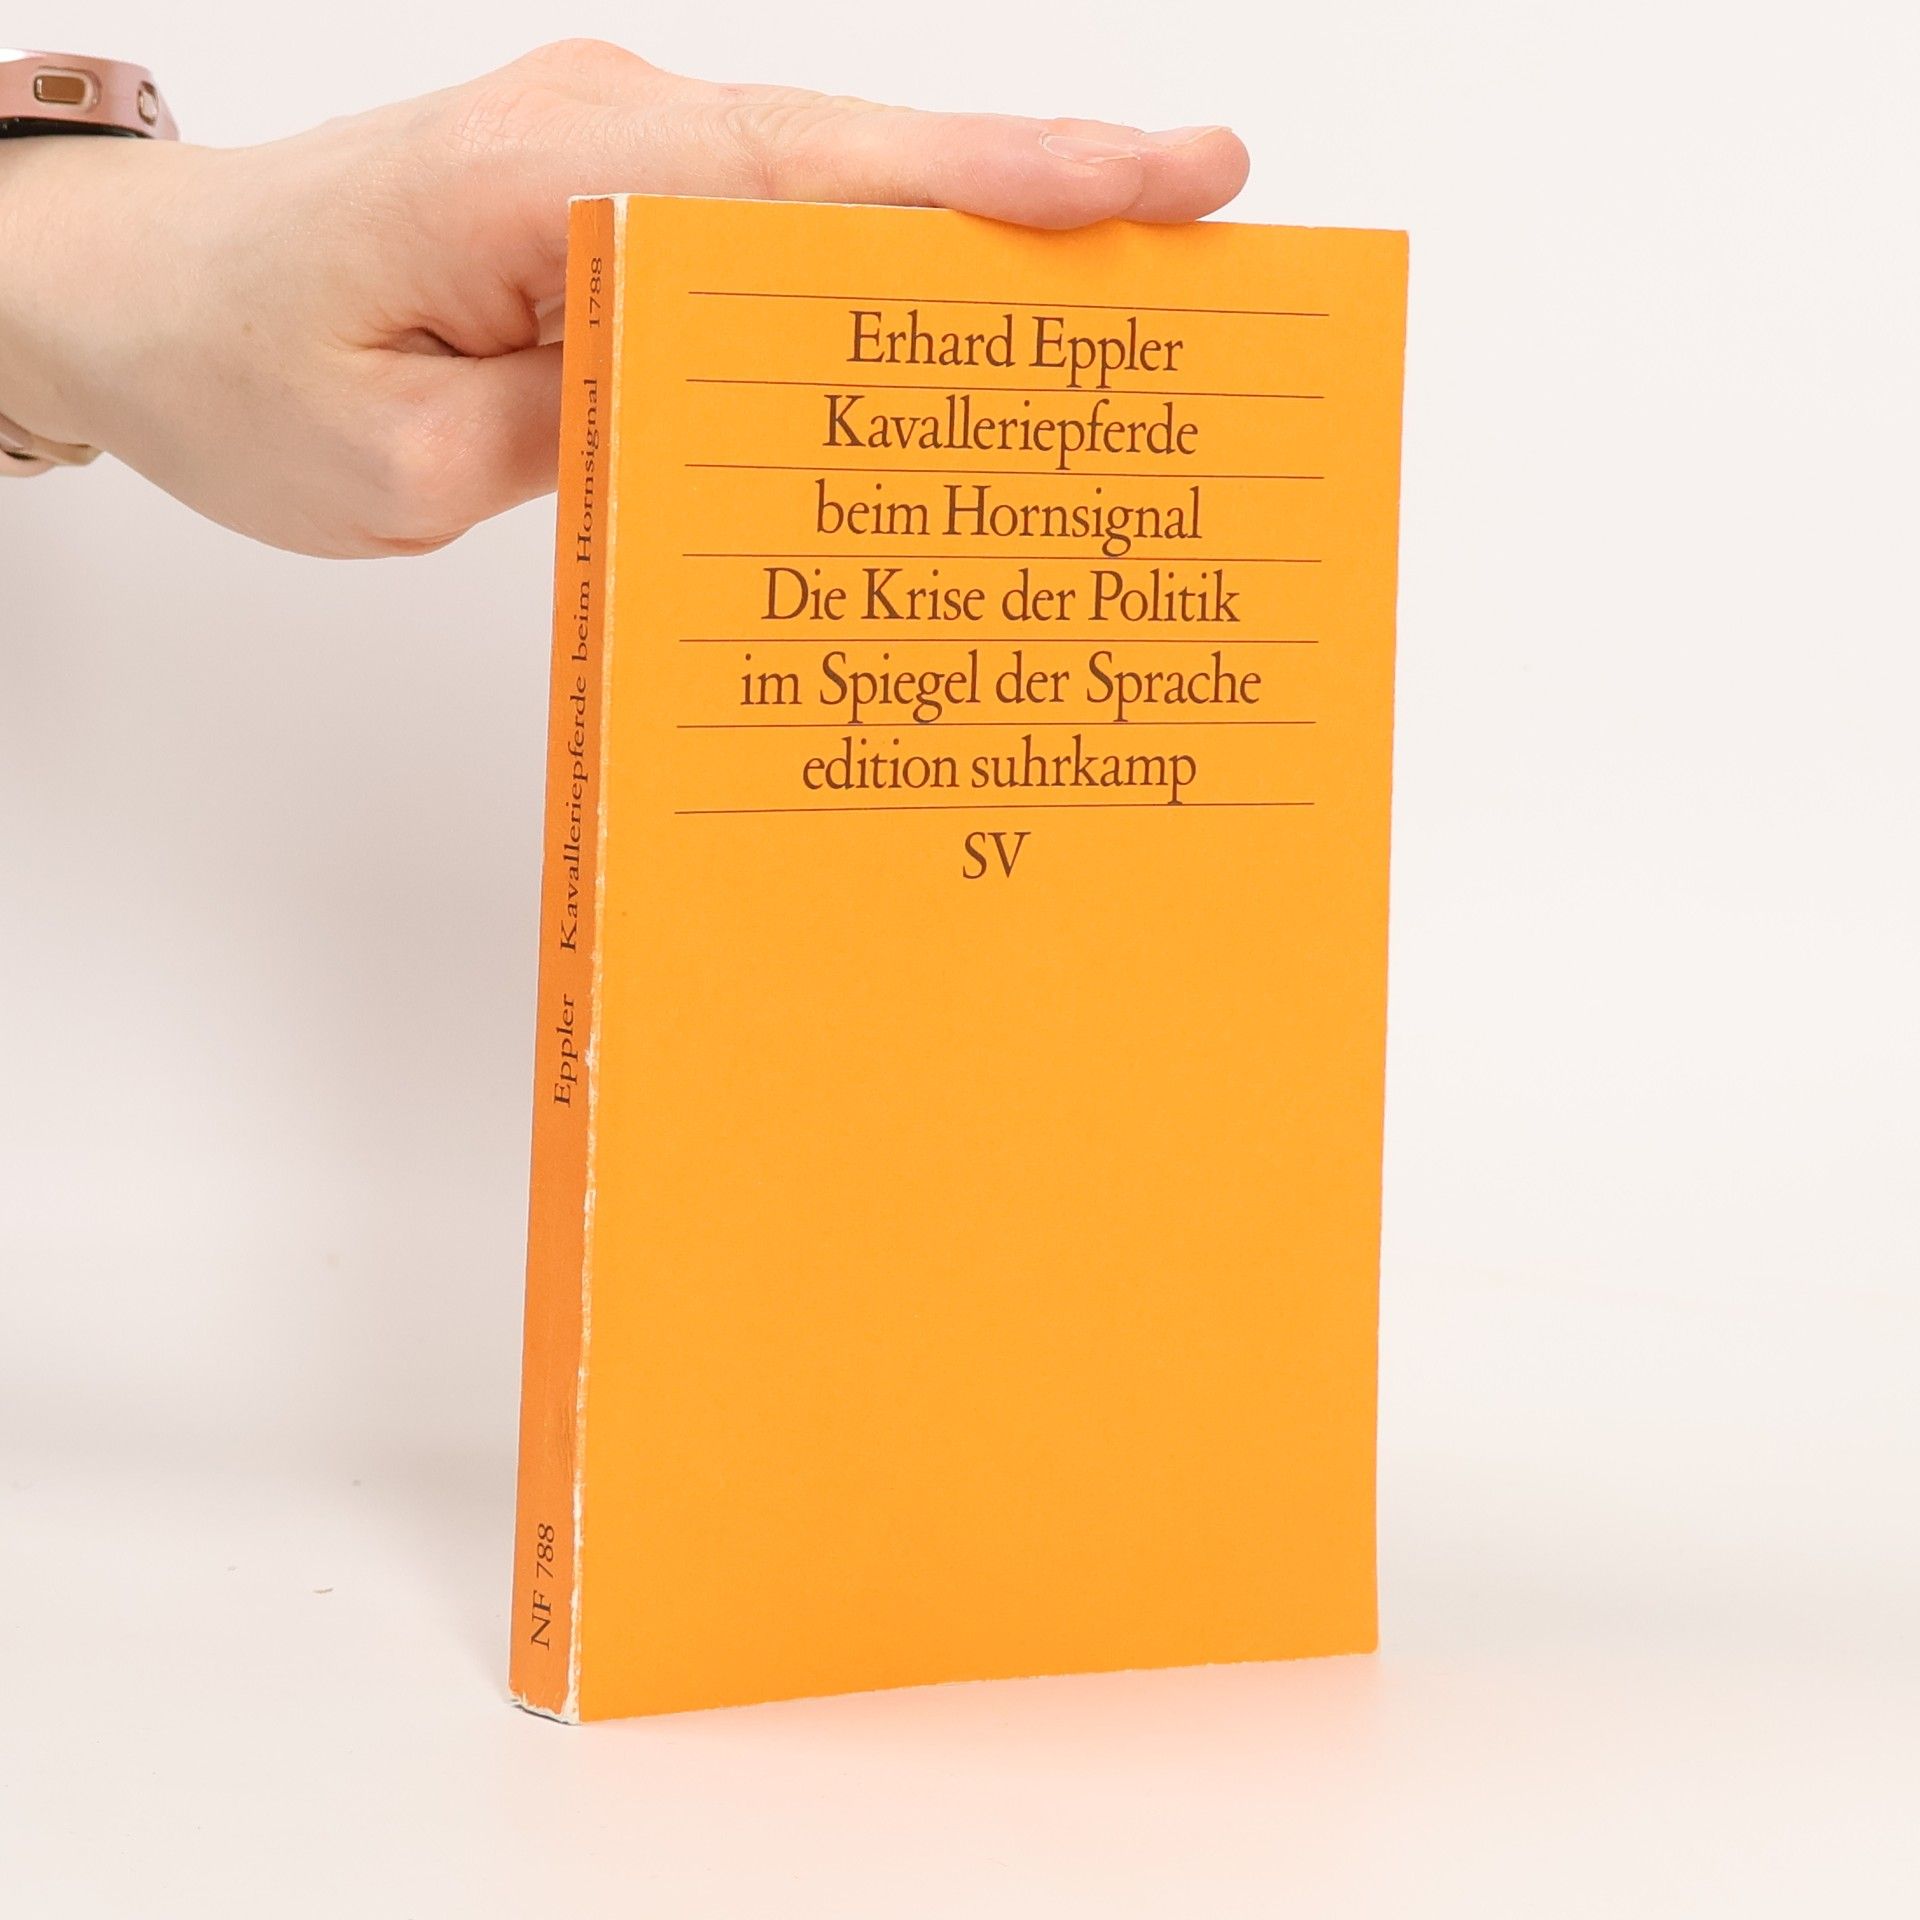 Erhard Eppler
Kavalleriepferde
beim Hornsignal
Die Krise der Politik
im Spiegel der Sprache
edition suhrkamp
SV
Eppler Kavalleriepferde beim Hornsignal 1788
NF 788